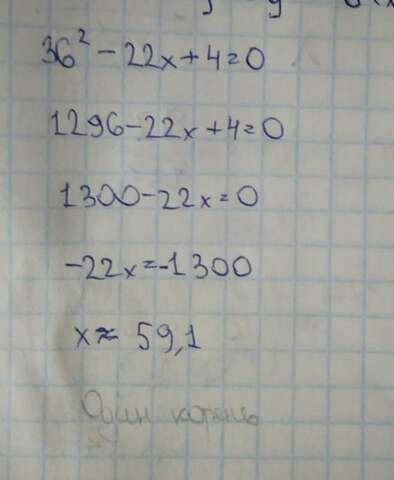 36² - 22x + 4 = 0
1296 - 22x + 4 = 0
1300 - 22x = 0
-22x = -1300
x ≈ 59,1
Один корень